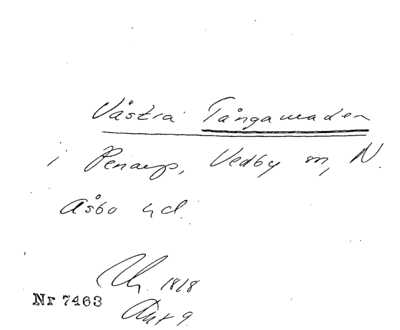 Västra Tångamaden
i Penarp, Vedby sn, N.
Åsbo hd.
Ch. 1818
Nr 7463
Akt 9.